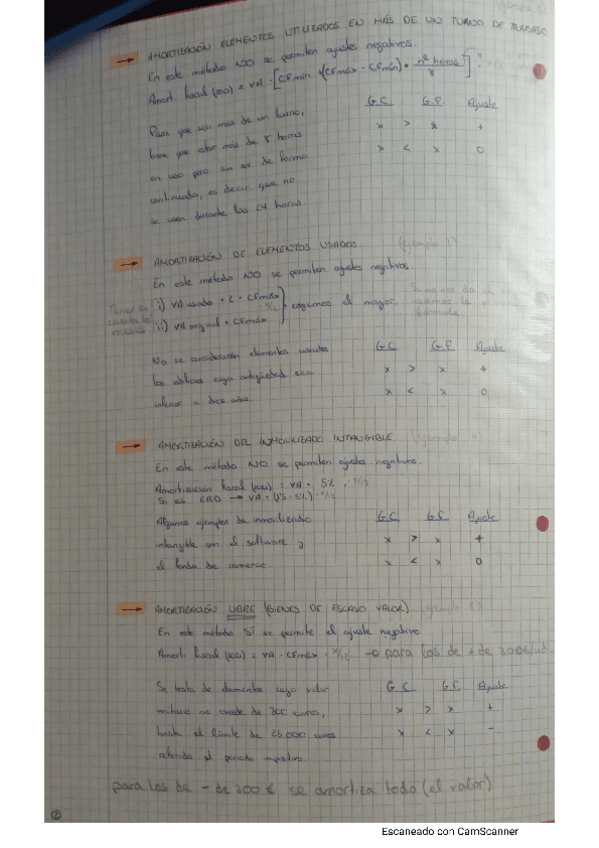 AMORTIZACIÓN ELEMENTOS UTILIZADOS EN MÁS DE UN TURNO DE TRABAJO
En este método NO se permiten ajustes negativos.
Amort. fiscal (2021) = VA · [CFmín + (CFmáx - CFmín) · nº horas / 8]
G.C G.F Ajuste
Para que sea más de un turno,
x > x +
tiene que estar más de 8 horas
x < x 0
en uso pero sin ser de forma
continuada, es decir, que no
se usen durante las 24 horas.
AMORTIZACIÓN DE ELEMENTOS USADOS. (Ejemplo
En este método NO se permiten ajustes negativos.
Tener en cuenta los meses
i) VA usado · 2 · CFmáx
ii) VA original · CFmáx
cogemos el mayor.
Si no nos da el
usamos la
fórmula
No se considerarán elementos usados
G.C G.F Ajuste
los edificios cuya antigüedad sea
x > x +
inferior a diez años.
x < x 0
AMORTIZACIÓN DEL INMOVILIZADO INTANGIBLE. (Ejemplo
En este método NO se permiten ajustes negativos.
Amortización fiscal = VA · 5%
Algunos ejemplos de inmovilizado
G.C G.F Ajuste
intangible son el software y
x > x +
el fondo de comercio.
x < x 0
AMORTIZACIÓN LIBRE (BIENES DE ESCASO VALOR) (ejemplo
En este método SÍ se permite el ajuste negativo
Amort. fiscal = VA · CFmáx · /12 → para los de + de 300€/ud.
Se trata de elementos cuyo valor
G.C G.F Ajuste
unitario no excede de 300 euros,
x > x +
hasta el límite de 25.000 euros
x < x -
referido al periodo impositivo.
para los de - de 300€ se amortiza todo (el valor)
Escaneado con CamScanner